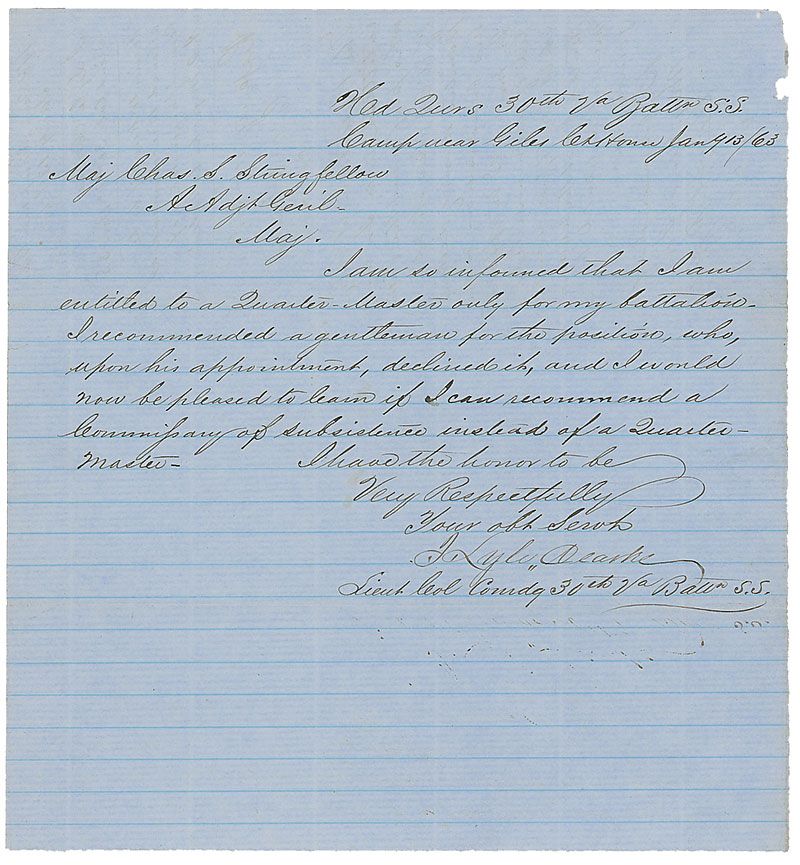 Hd Qurs 30th Va Battn S.S.
Camp near Giles Ct House Jany 13/63
Maj Chas. S. Stringfellow
A Adjt Genl-
Maj.
I am so informed that I am
entitled to a Quarter-Master only for my battalion.
I recommended a gentleman for the position, who,
upon his appointment, declined it, and I would
now be pleased to learn if I can recommend a
Commissary of subsistence instead of a Quarter-
Master- I have the honor to be
Very Respectfully
Your obt Servt
J Lyle Clarke
Lieut Col Comdg 30th Va Battn S.S.